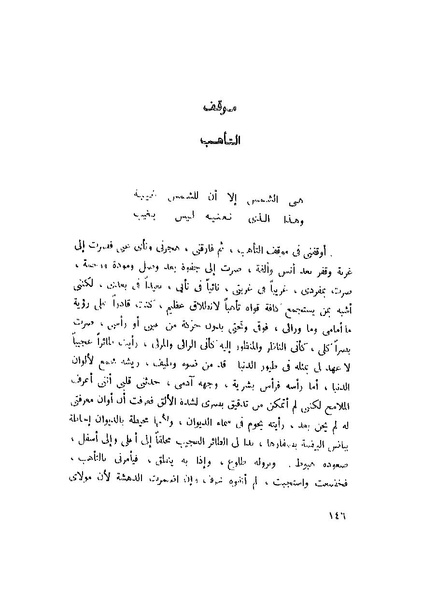 موقف
التأهب
هى الشمس إلا أن للشمس غيبة
وهذا الذى نعنيه ليس يغيب
أوقفنى فى موقف التأهب ، ثم فارقنى ، هجرنى ونأى عنى فصرت إلى
غربة وقفر بعد أنس وألفة ، صرت إلى جفوة بعد وصل ومودة
صرت بمفردى ، غريباً فى غربتى ، نائياً فى نأيى ، بعيداً فى بعادى ، لكننى
أشبه بمن يستجمع كافة قواه تأهباً لانطلاق عظيم ، كنت قادراً على رؤية
ما أمامى وما ورائى ، فوقى وتحتى بدون حركة من عينى أو رأسى ، صرت
بصراً كلى ، كأنى الناظر والمنظور إليه كأنى الرائى والمرئى ، رأيت طائراً عجيباً
لا عهد لى بمثله فى طيور الدنيا قد من ضوء ، ريشه جمع لألوان
الدنيا ، أما رأسه فرأس بشرية ، وجهه آدمى ، حدثنى قلبى أننى أعرف
الملامح لكننى لم أتمكن من تدقيق بصرى لشدة الألق فعرفت أن أوان معرفتى
له لم يحن بعد ، رأيته يحوم فى سماء الديوان ، محيطة بالديوان إحاطة
بياض البيضة بصفارها ، بدا لى الطائر العجيب محلقاً إلى أعلى وإلى أسفل ،
صعوده هبوط . ونزوله طلوع ، وإذا به ينطق ، فيأمرنى بالتأهب ،
فخضعت واستجبت ، لم أتفوه بحرف ، وإن أضمرت الدهشة لأن مولاى
١٤٦